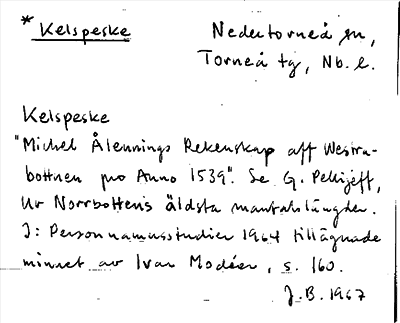 * Kelspeske
Nedertorneå sn,
Torneå tg, Nb. l.
Kelspeske
"Michel Ålennings Rekenskap aff Westra-
bottnen pro Anno 1539". Se G. Pellijeff,
Ur Norrbottens äldsta mantalslängder.
I: Personnamnsstudier 1964 tillägnade
minnet av Ivar Modéer, s. 160.
J.B. 1967